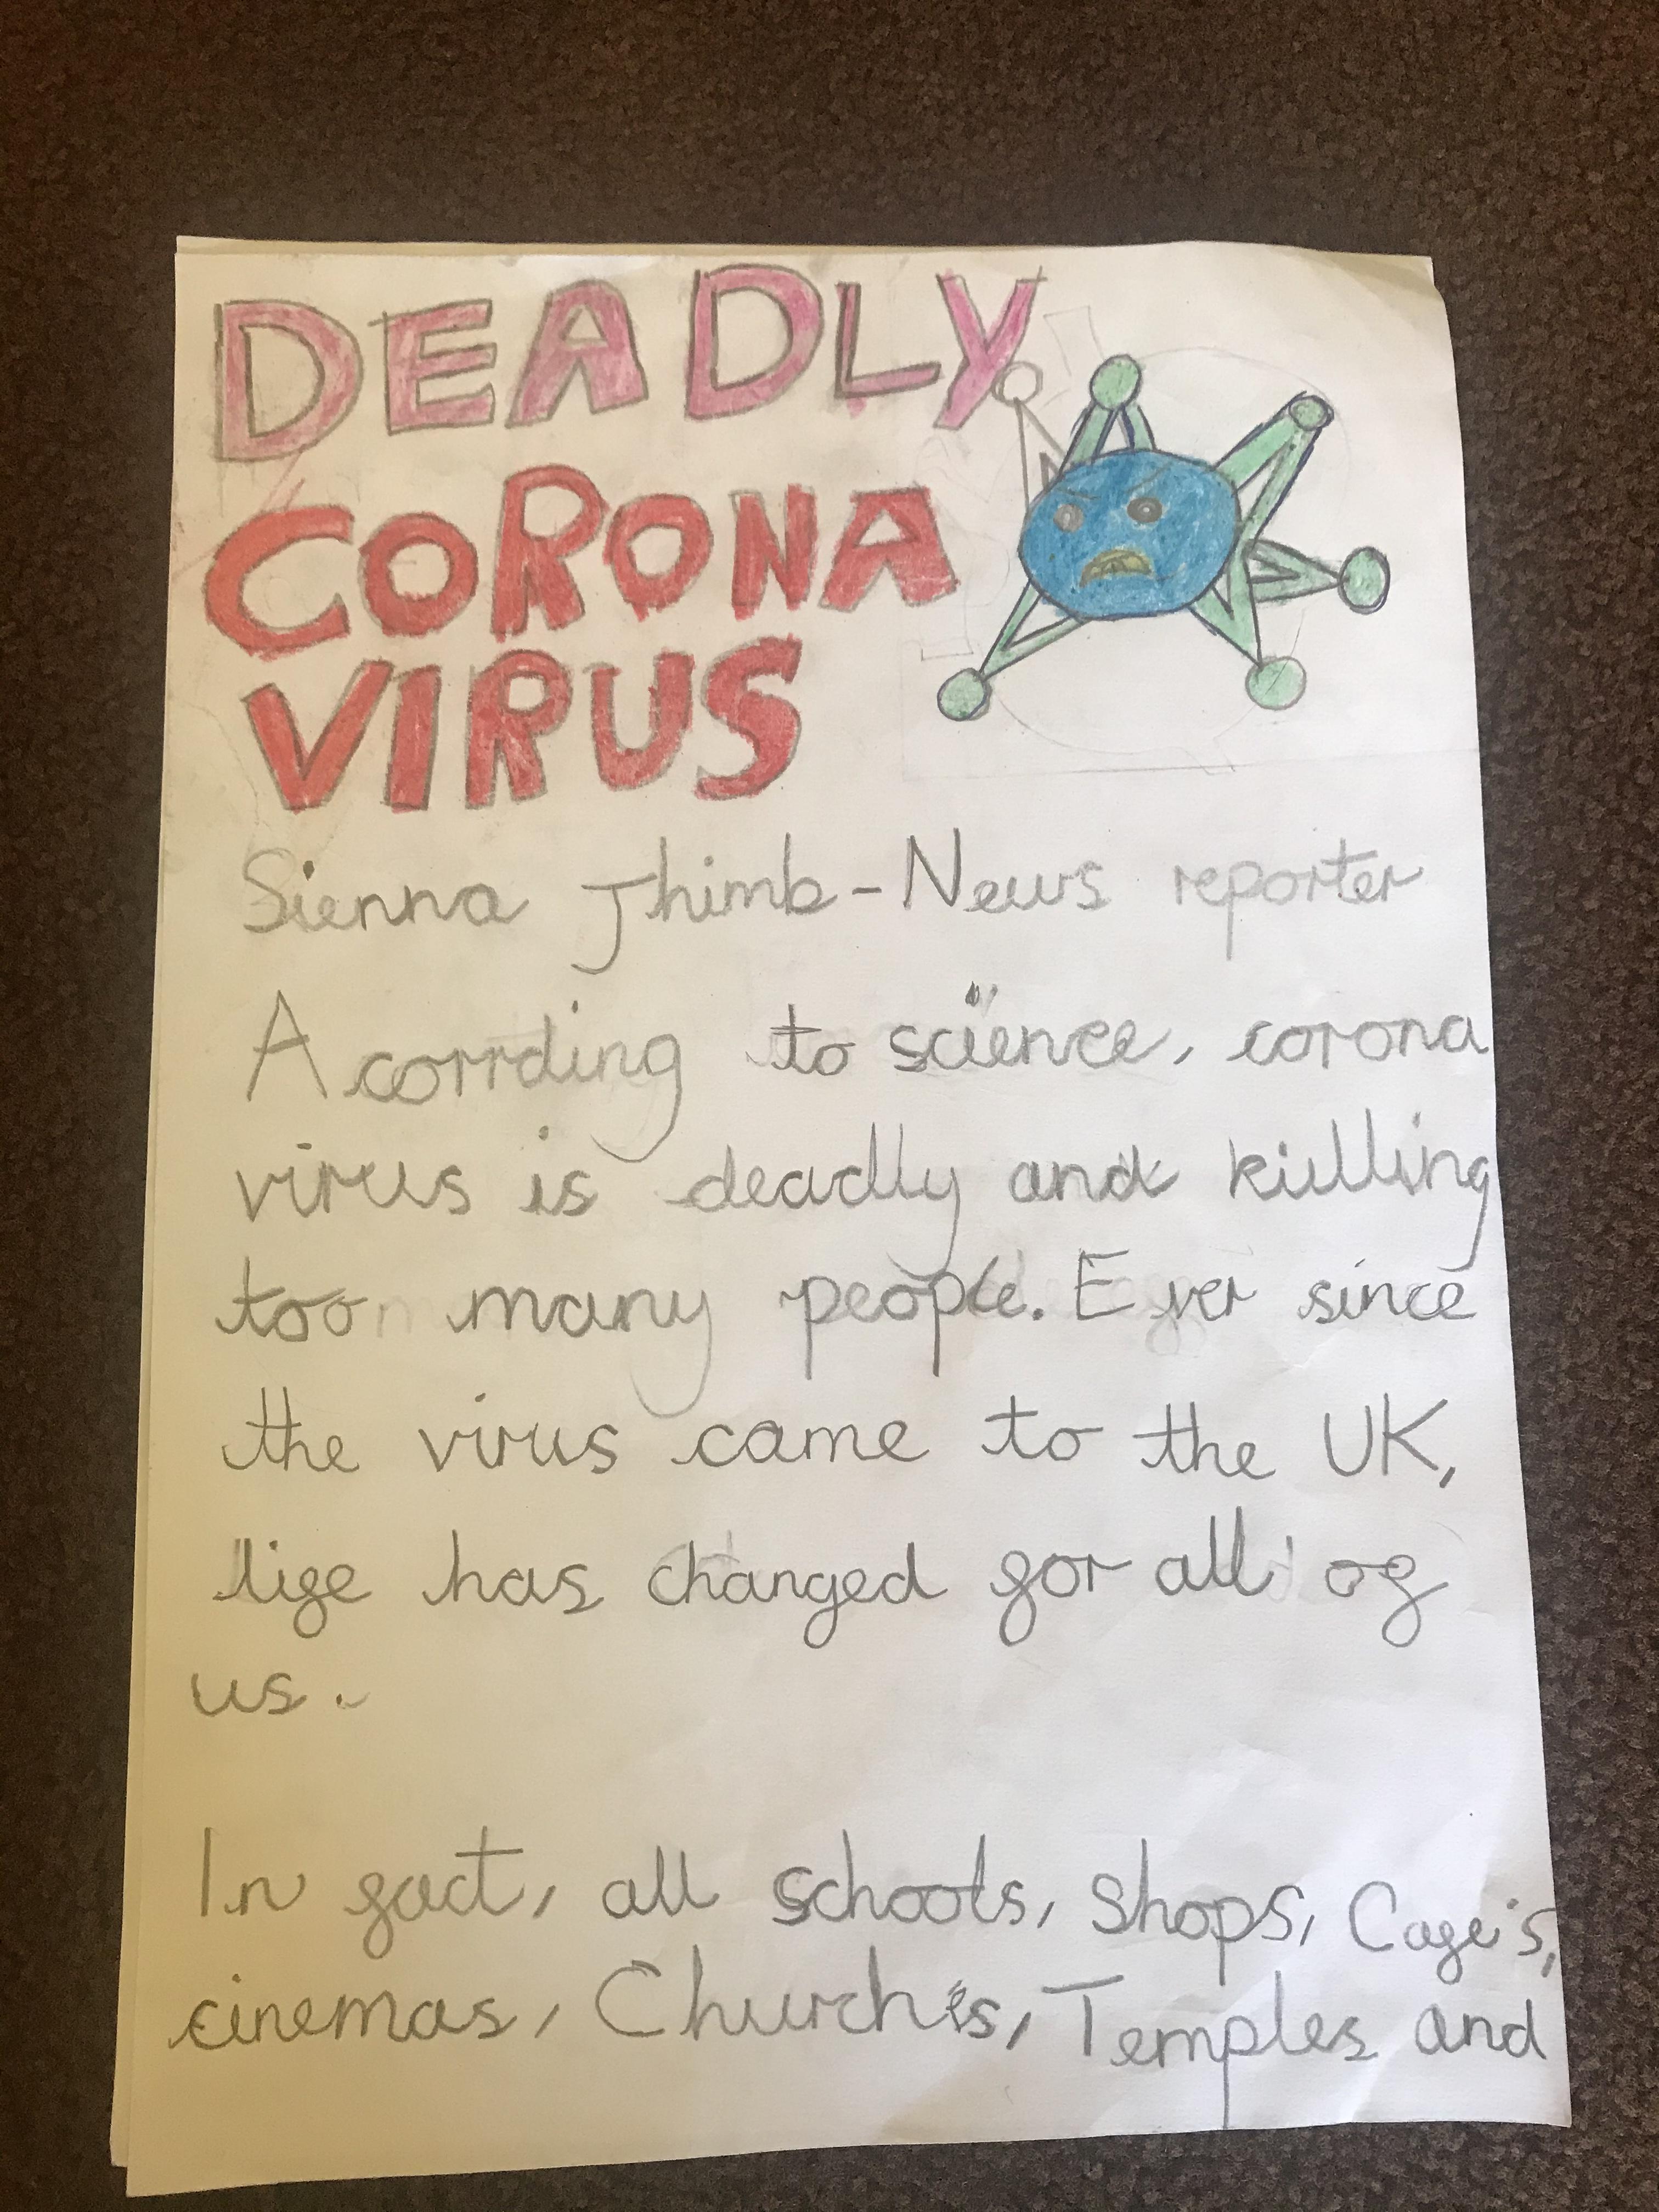 DEADLY
CORONA
VIRUS
Sienna Thimb - News reporter
Acorrding to science, corona
virus is deadly and killing
too many people. Ever since
the virus came to the UK,
life has changed for all of
us.
In fact, all schools, shops, Cafe's,
cinemas, Churchs, Temples and